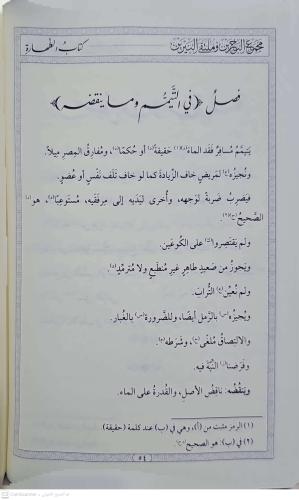 مجمع البحرين وملتقى النيرين
كتاب الطهارة
فصل ﴿في التَّيمُّم وما ينقضه﴾
يَتيمَّمُ مُسافرٌ فَقَد الماءَ(١) حَقيقةً أو حُكمًا، ومُفارِقُ المِصرِ مِيلًا.
ونُجيزُه لمَريضٍ خافَ الزِّيادةَ كما لو خاف تَلَف نَفْسٍ أو عُضوٍ.
فيَضرِبُ ضَربةً لوَجهِه، وأُخرى ليَدَيه إلى مِرفَقَيه، مُستَوعِبًا، هو
الصَّحيحُ(٢).
ولم يَقتَصِروا على الكُوعَين.
ويَجوزُ من صَعيدٍ طاهِرٍ غيرِ مُنطَبِعٍ ولا مُترمِّدٍ.
ولم نُعيِّن التُّرابَ.
ويُجيزُه بالرَّملِ أيضًا، وللضَّرورةِ بالغُبارِ.
والالتِصاقُ مُلغًى، وشَرَطه.
وفَرَضنا النِّيَّةَ فيه.
ويَنقُضُه: ناقضُ الأصلِ، والقُدرةُ على الماء.
(١) الرمز مثبت من (أ)، وهي في (ب) عند كلمة (حقيقة)
(٢) في (ب): هو الصحيح
٥٤
CamScanner